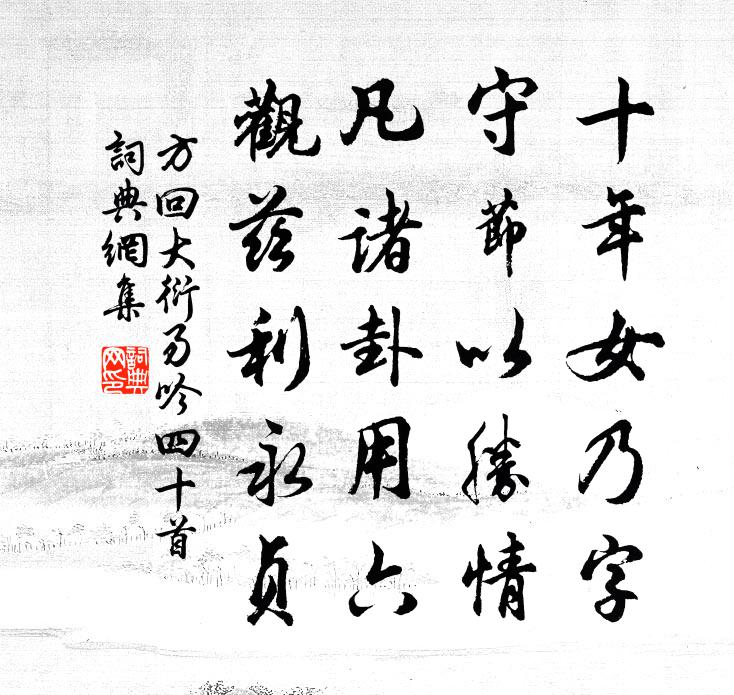 十年女乃字
守節以勝情
凡諸卦用六
觀茲利永貞
方回大衍易吟四十首
詞典網集
詞典網印